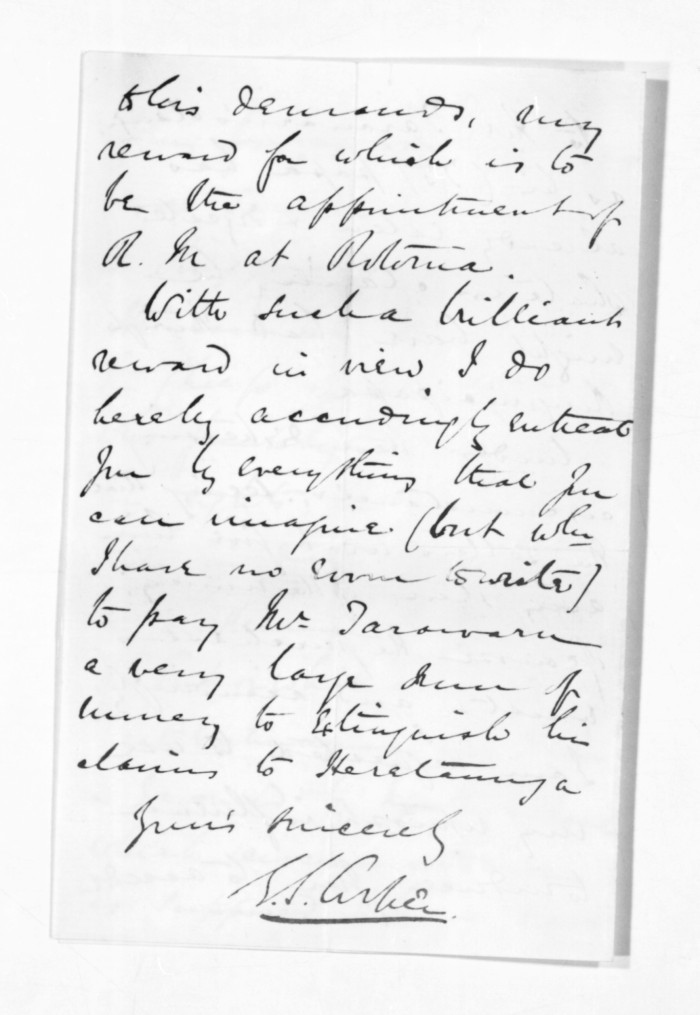 to his demands, my
reward for which is to
be the appointment of
R. M at Rotorua.
With such a brilliant
reward in view I do
hereby accordingly entreat
you by everything that you
can imagine (but wh
I have no room to write)
to pay Mr Tarawaru
a very large sum of
money to extinguish his
claims to Heretaunga
Yours sincerely
G.S. Cooper